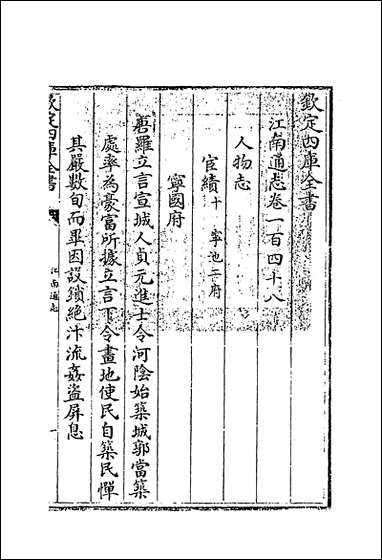 欽定四庫全書
江南通志卷一百四十八
人物志
宦績十 寧池二府
寧國府
唐羅立言宣城人貞元進士令河陰始築城郭當築
處率為豪富所據立言下令畫地使民自築民憚
其嚴數旬而畢因設鎖絶汴流姦盜屏息
欽定四庫全書
江南通志
一